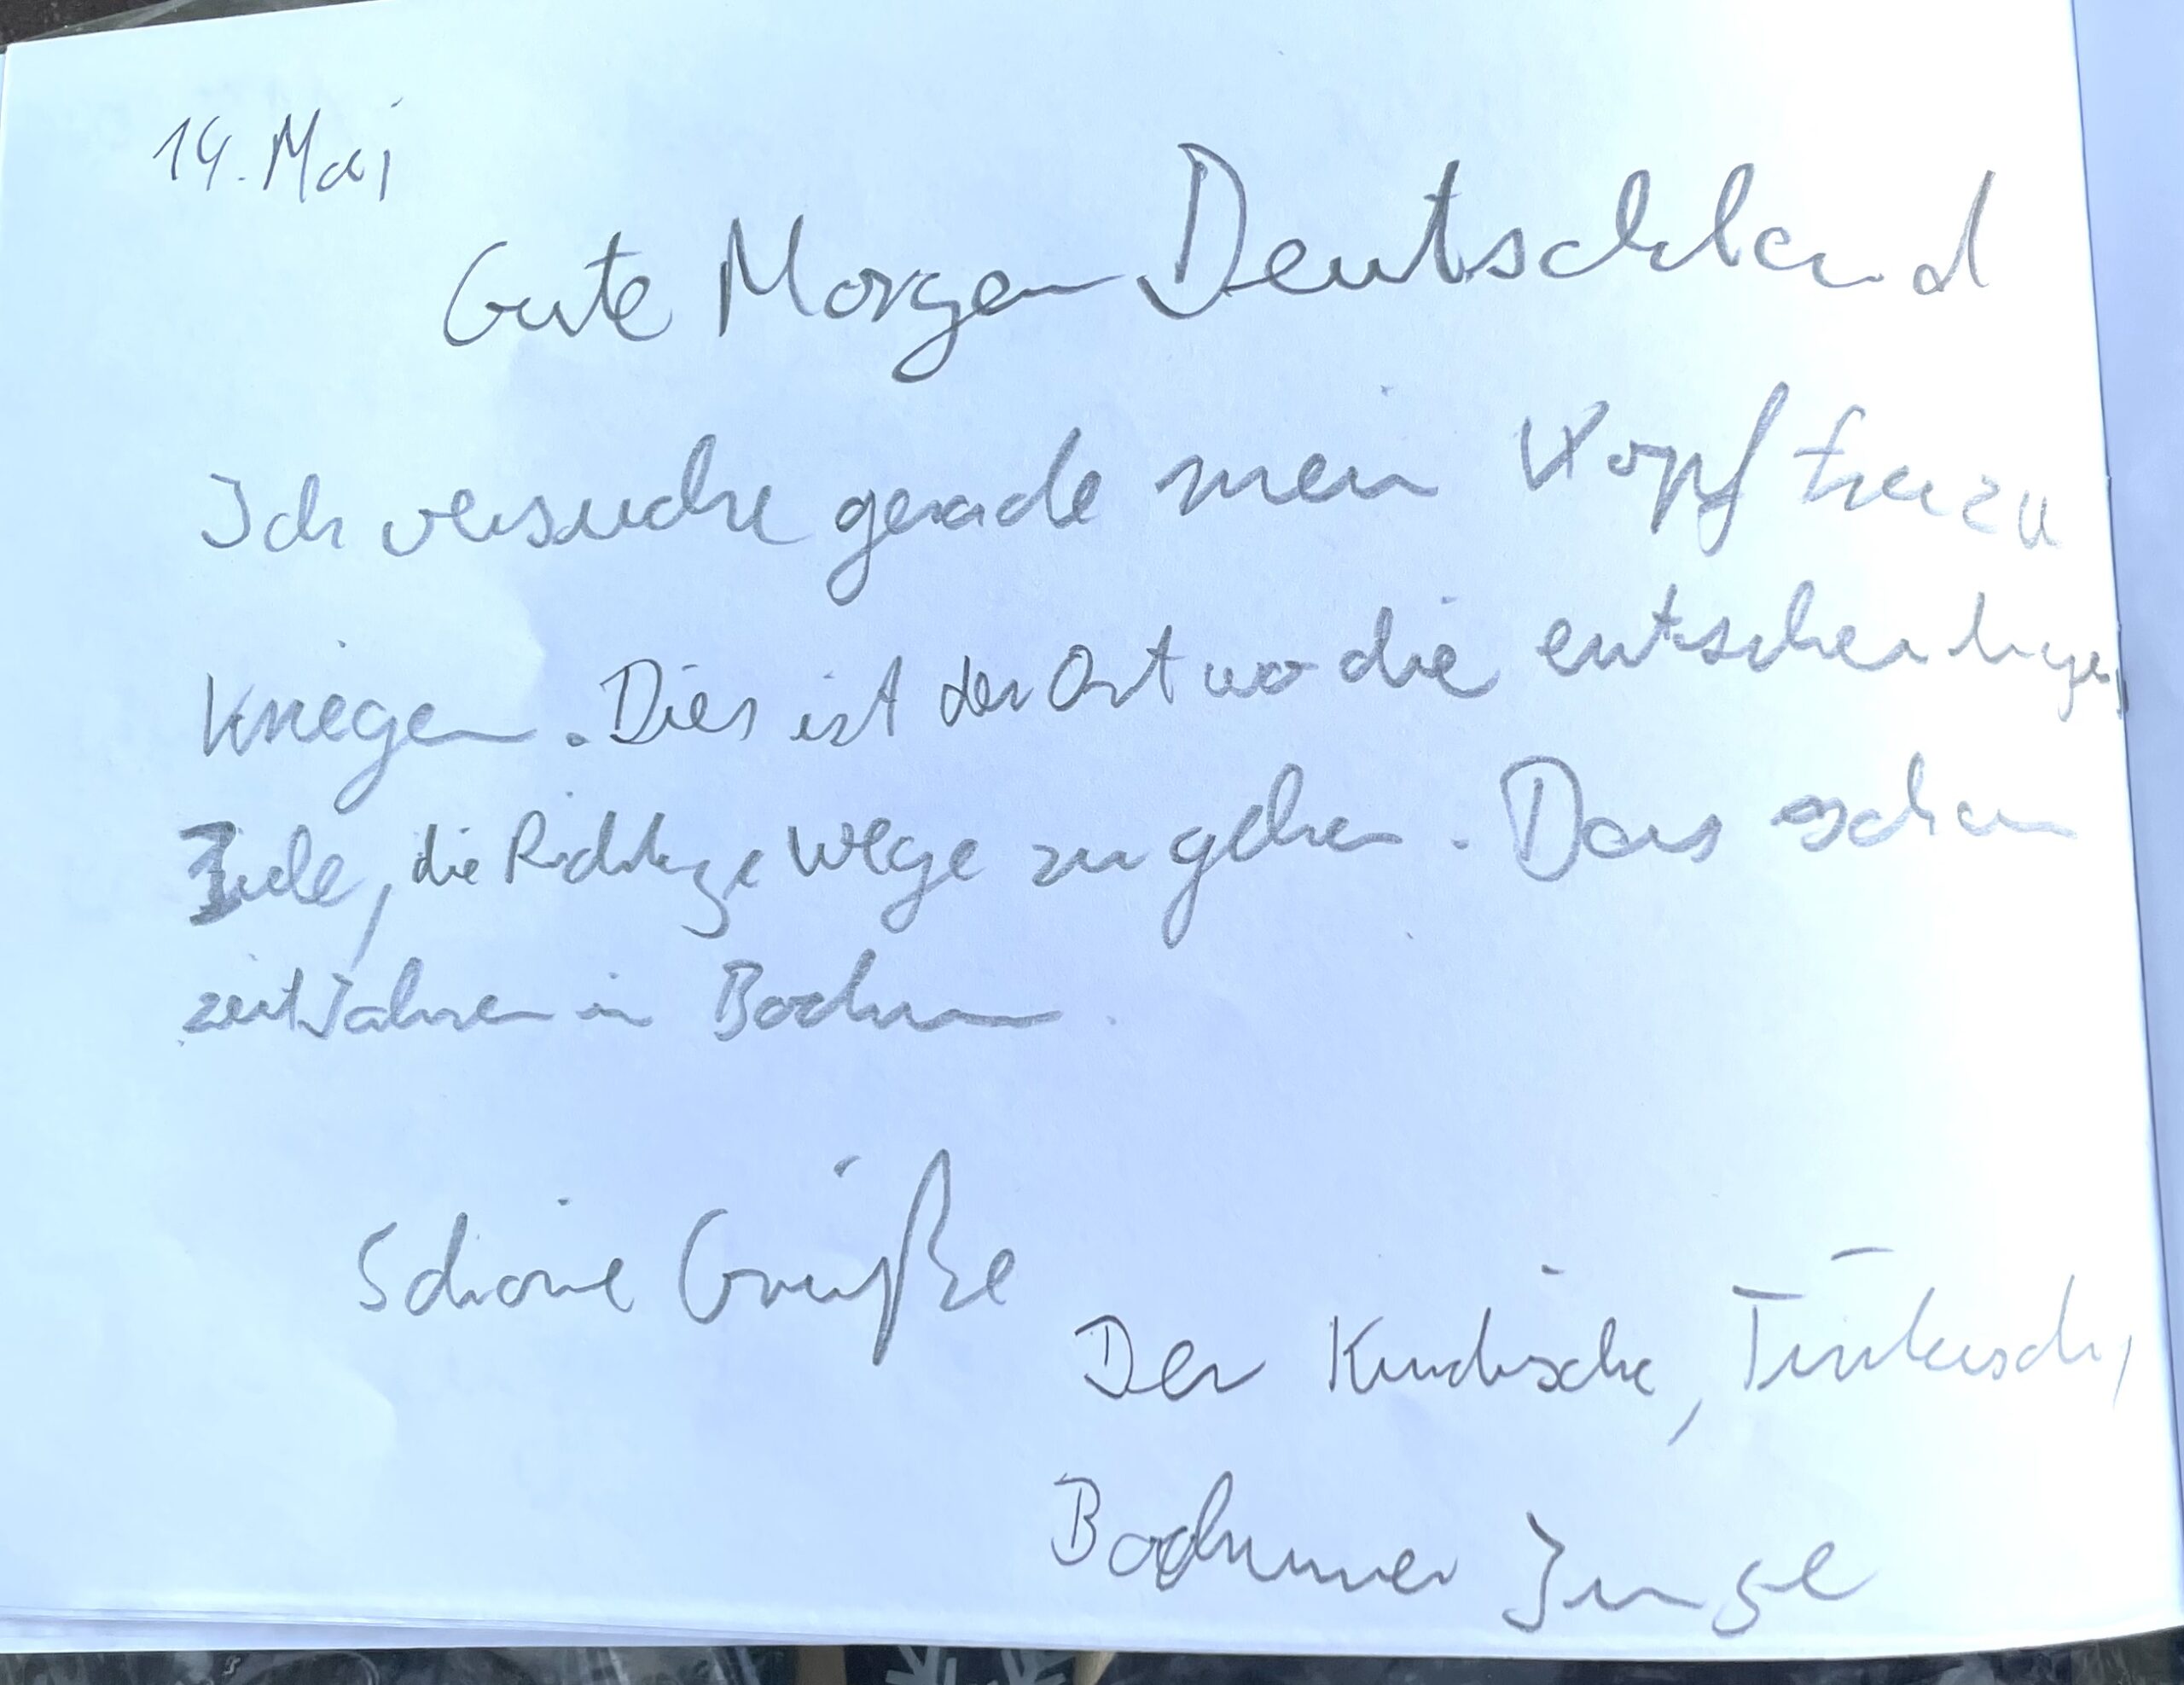 14. Mai
Gute Morgen Deutschland
Ich versuche gerade mein Kopf frei zu
Kriegen. Dies ist der Ort wo die
Ziele, die Richtige Wege zu gehen. Das schon
zeit Jahren in Bochum.
Schöne Grüße
Der Kurdische, Türkisch,
Bochumer Junge